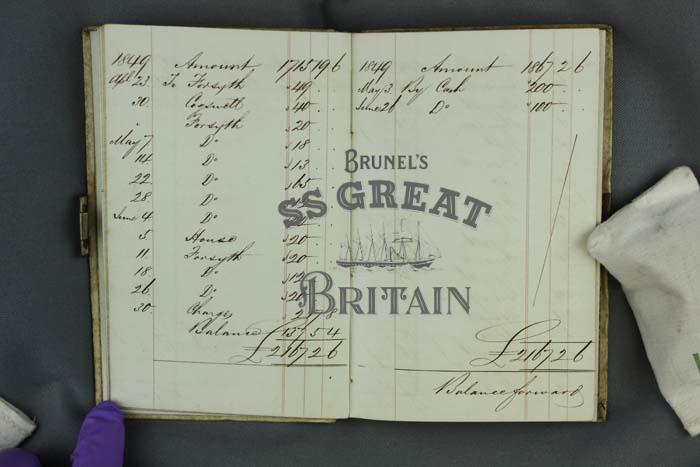 1849 Amount 1715 19 6
Apl 23. To Forsyth "49
30. Cogswell "40
Forsyth "20
May 7 Do "18
14 Do "13
22 Do "65
28 Do
June 4 Do
5 House "20
11 Forsyth "20
18 Do "12
26 Do
30 Charges
Balance
£2167 2 6
1849 Amount 1867 2 6
May 3 By Cash "200
June 26 Do "100
£2167 2 6
Balance forward
BRUNEL'S
SS GREAT
BRITAIN